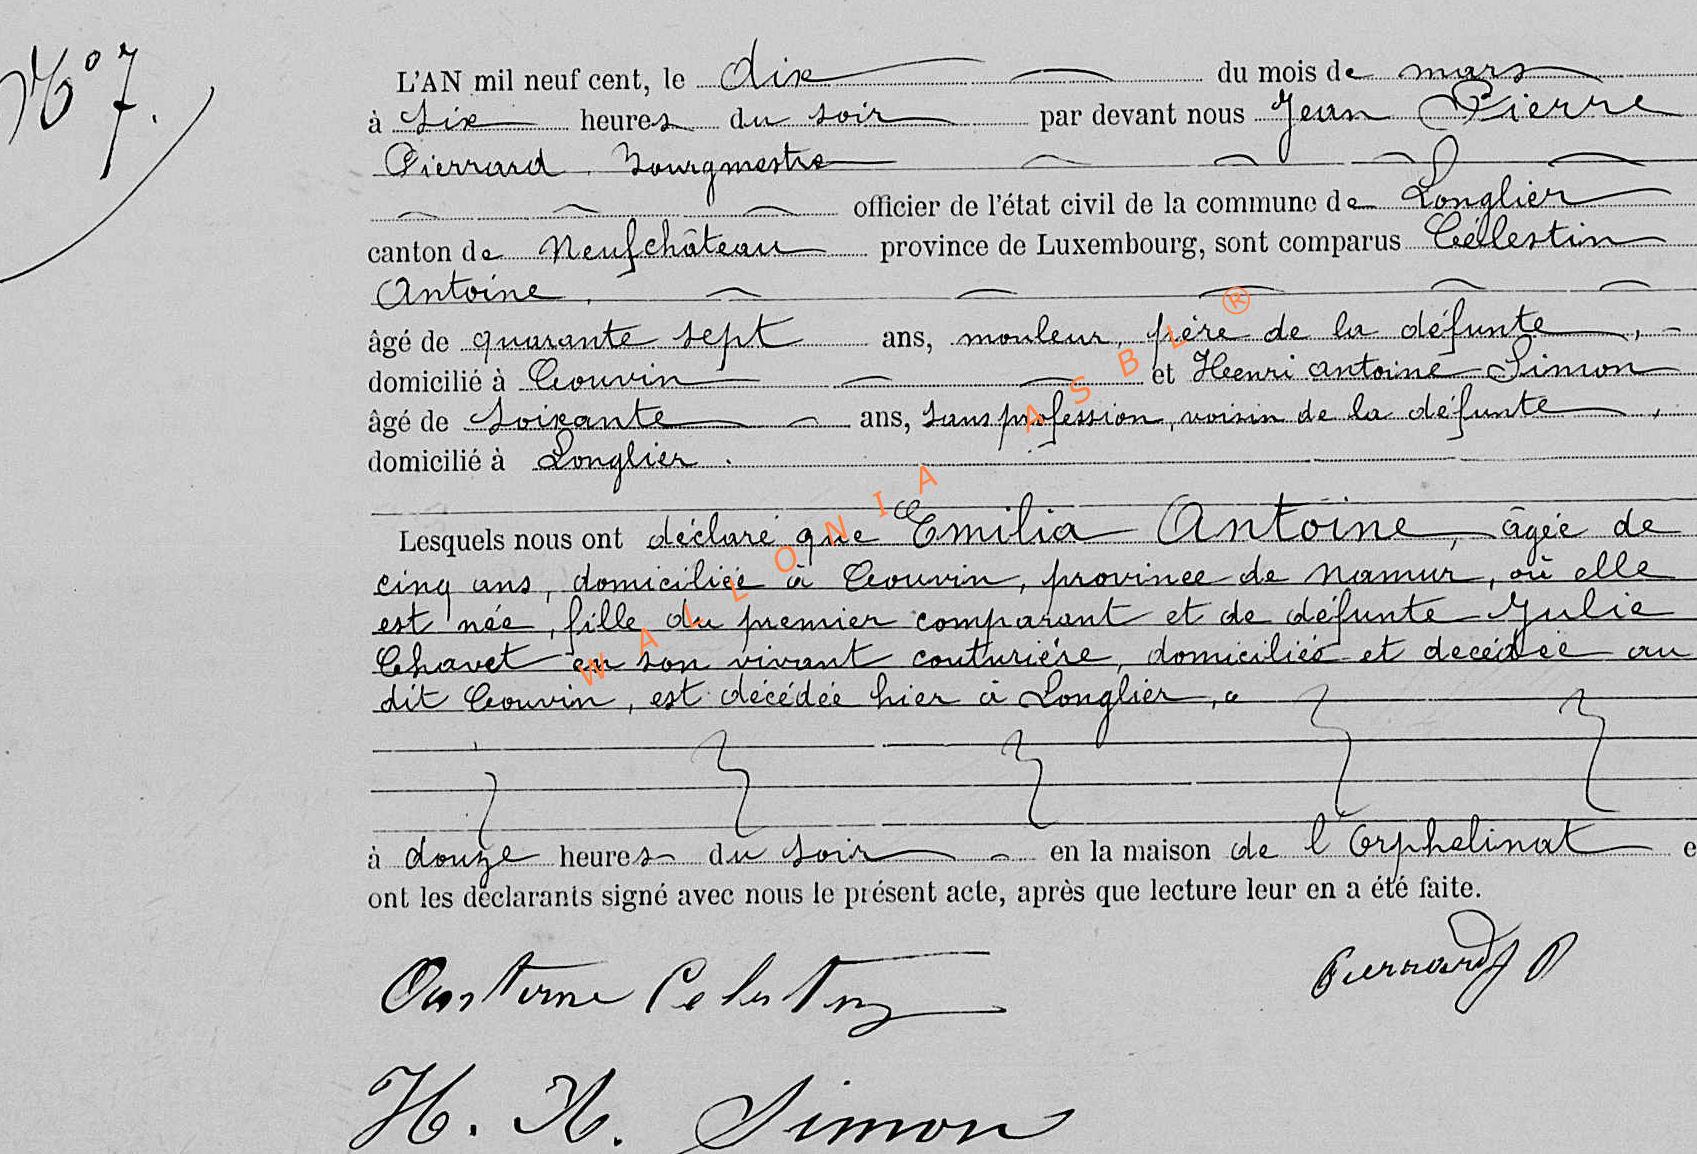 N° 7.
L'AN mil neuf cent, le dix du mois de mars
à six heures du soir par devant nous Jean Pierre
Pierrard, Bourgmestre
officier de l'état civil de la commune de Longlier
canton de Neufchâteau province de Luxembourg, sont comparus Célestin
Antoine,
âgé de quarante sept ans, mouleur, père de la défunte,
domicilié à Couvin et Henri Antoine Simon
âgé de soixante ans, sans profession, voisin de la défunte,
domicilié à Longlier.
Lesquels nous ont déclaré que Emilia Antoine, âgée de
cinq ans, domiciliée à Couvin, province de Namur, où elle
est née, fille du premier comparant et de défunte Julie
Chavet en son vivant couturière, domiciliée et decédée au
dit Couvin, est décédée hier à Longlier,
à douze heures du soir en la maison de l'Orphelinat e
ont les déclarants signé avec nous le présent acte, après que lecture leur en a été faite.
Antoine Celestin
Pierrard P
H. A. Simon
WALLONIA ASBL ®